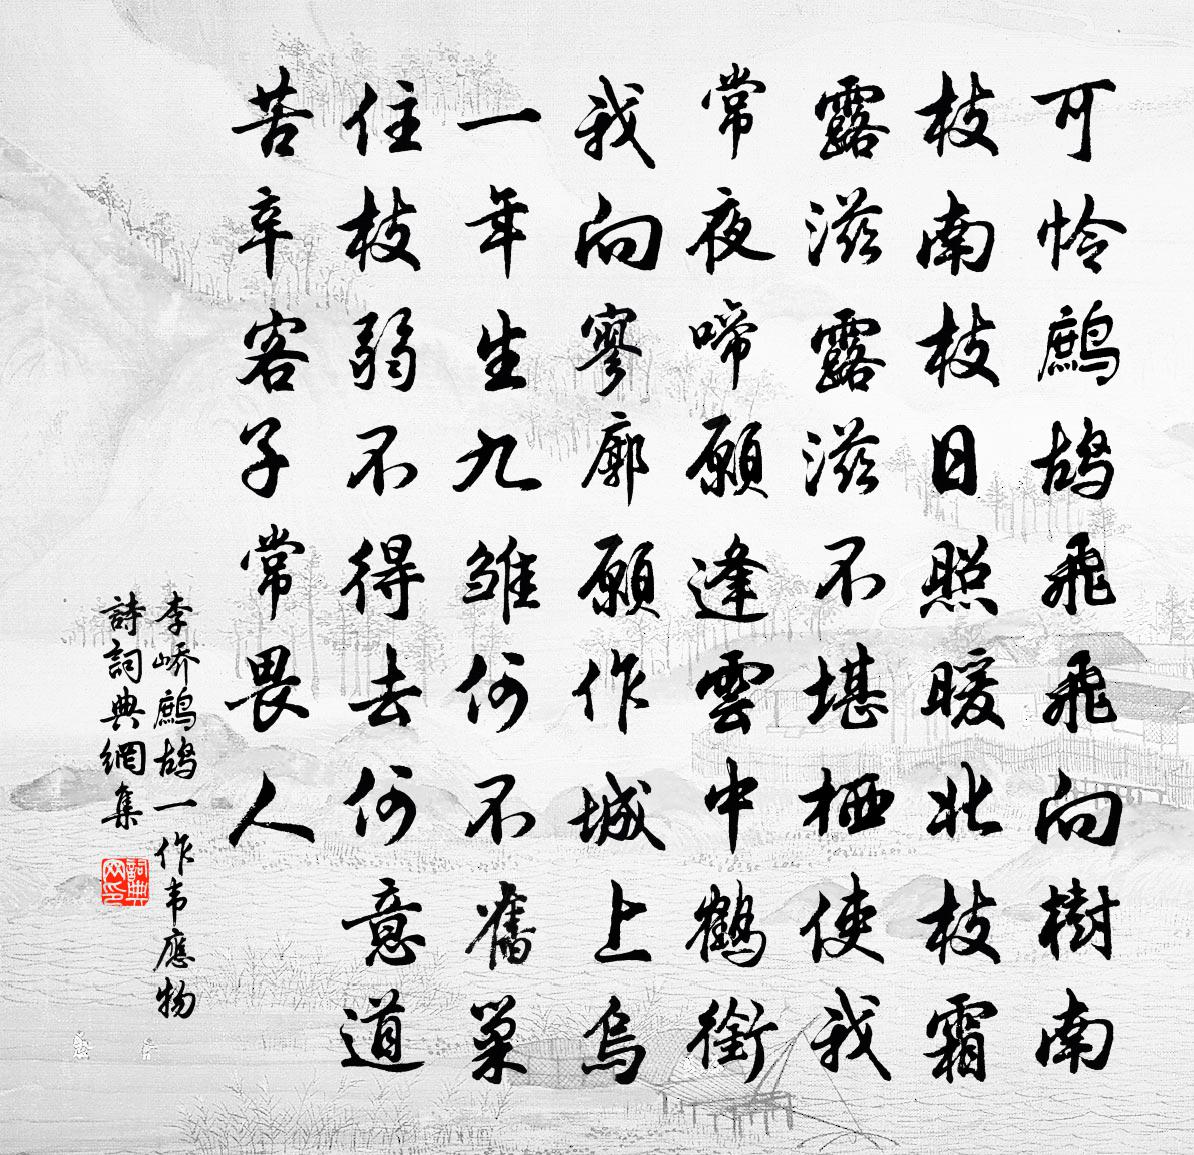 可怜鷓鴣飛飛向樹南
枝南枝日照暖北枝霜
露滋露滋不堪栖使我
常夜啼願逢雲中鶴銜
我向寥廓願作城上烏
一年生九雛何不舊巢
住枝弱不得去何意道
苦辛客子常畏人
李嶠鷓鴣一作韦應物
詩詞典網集
詞典网印